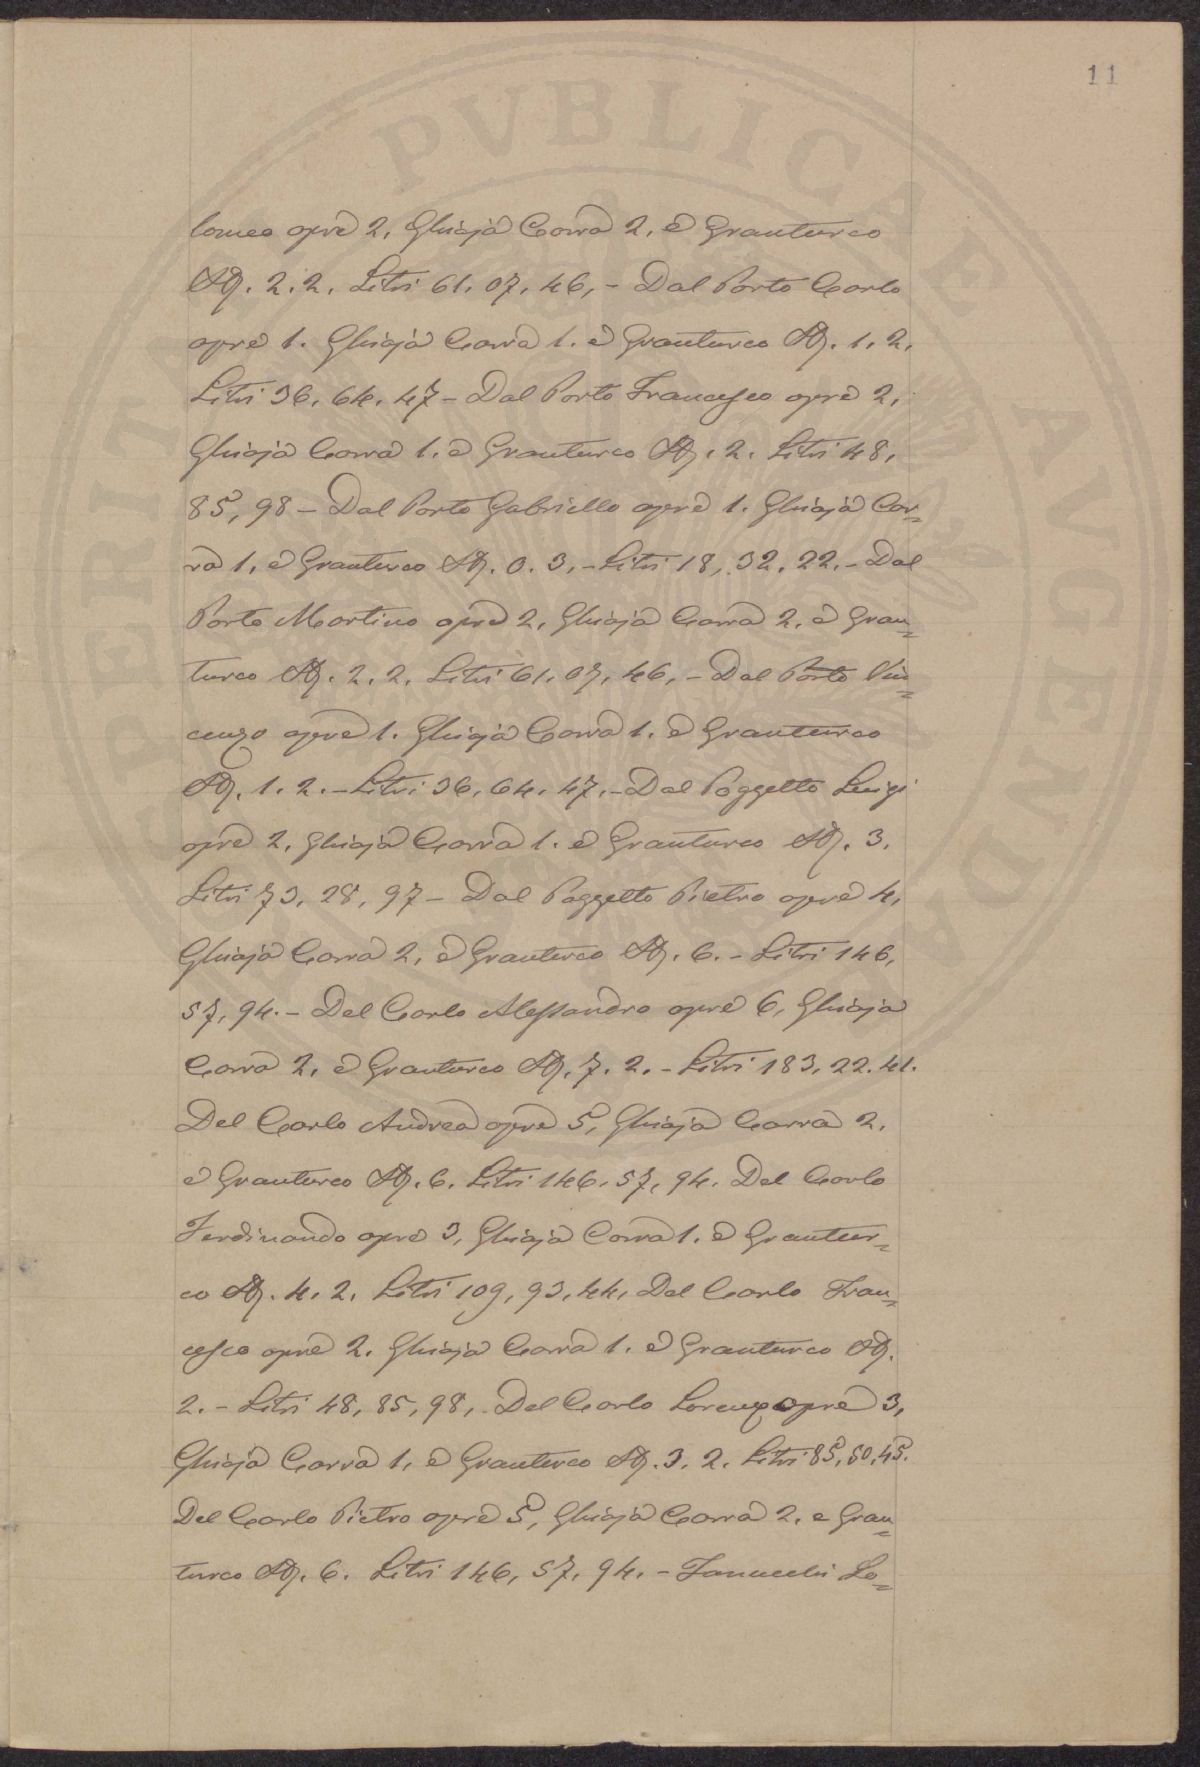 11
PVBLICAE
VERITATI
AVGENDA
lomeo opre 2, Ghiaja Carra 2, e Granturco
St. 2. 2. Litri 61. 07. 46, - Dal Porto Carlo
opre 1. Ghiaja Carra 1. e Granturco St. 1. 2.
Litri 36, 64, 47 - Dal Porto Francesco opre 2,
Ghiaja Carra 1. e Granturco St. 2. Litri 48,
85, 98 - Dal Porto Gabriello opre 1. Ghiaja Car=
ra 1, e Granturco St. 0. 3, - Litri 18, 32, 22. - Dal
Porto Martino opre 2, Ghiaja Carra 2. e Gran=
turco St. 2. 2. Litri 61. 07, 46, - Dal Porto Vin=
cenzo opre 1. Ghiaja Carra 1. e Granturco
St. 1. 2. - Litri 36, 64. 47. - Dal Poggetto Luigi
opre 2, Ghiaja Carra 1. e Granturco St. 3.
Litri 73, 28, 97 - Dal Poggetto Pietro opre 4,
Ghiaja Carra 2, e Granturco St. 6. - Litri 146,
57, 94. - Del Carlo Alessandro opre 6, Ghiaja
Carra 2, e Granturco St. 7. 2. - Litri 183, 22. 41.
Del Carlo Andrea opre 5, Ghiaja Carra 2.
e Granturco St. 6. Litri 146. 57, 94. Del Carlo
Ferdinando opre 3, Ghiaja Carra 1. e Grantur=
co St. 4. 2. Litri 109, 93, 44, Del Carlo Fran=
cesco opre 2. Ghiaja Carra 1. e Granturco St.
2. - Litri 48, 85, 98, Del Carlo Lorenzo opre 3,
Ghiaja Carra 1, e Granturco St. 3. 2. Litri 85, 50, 45.
Del Carlo Pietro opre 5, Ghiaja Carra 2. e Gran=
turco St. 6. Litri 146, 57, 94. - Fanucchi Lo=